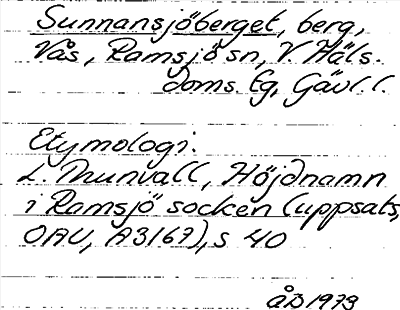 Sunnansjöberget, berg,
Vås, Ramsjö sn, V. Häls.
doms. tg, Gävl. l.
Etymologi.
L. Munvall, Höjdnamn
i Ramsjö socken (uppsats,
OAU, A3167), s 40
ÅD 1973